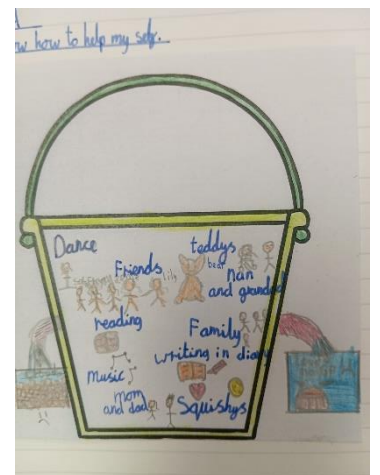 w how to help my self.
Dance
teddys
Friends
lily
bear
nan
and grandad
reading
Family
writing in diary
music
mom
and dad
Squishys